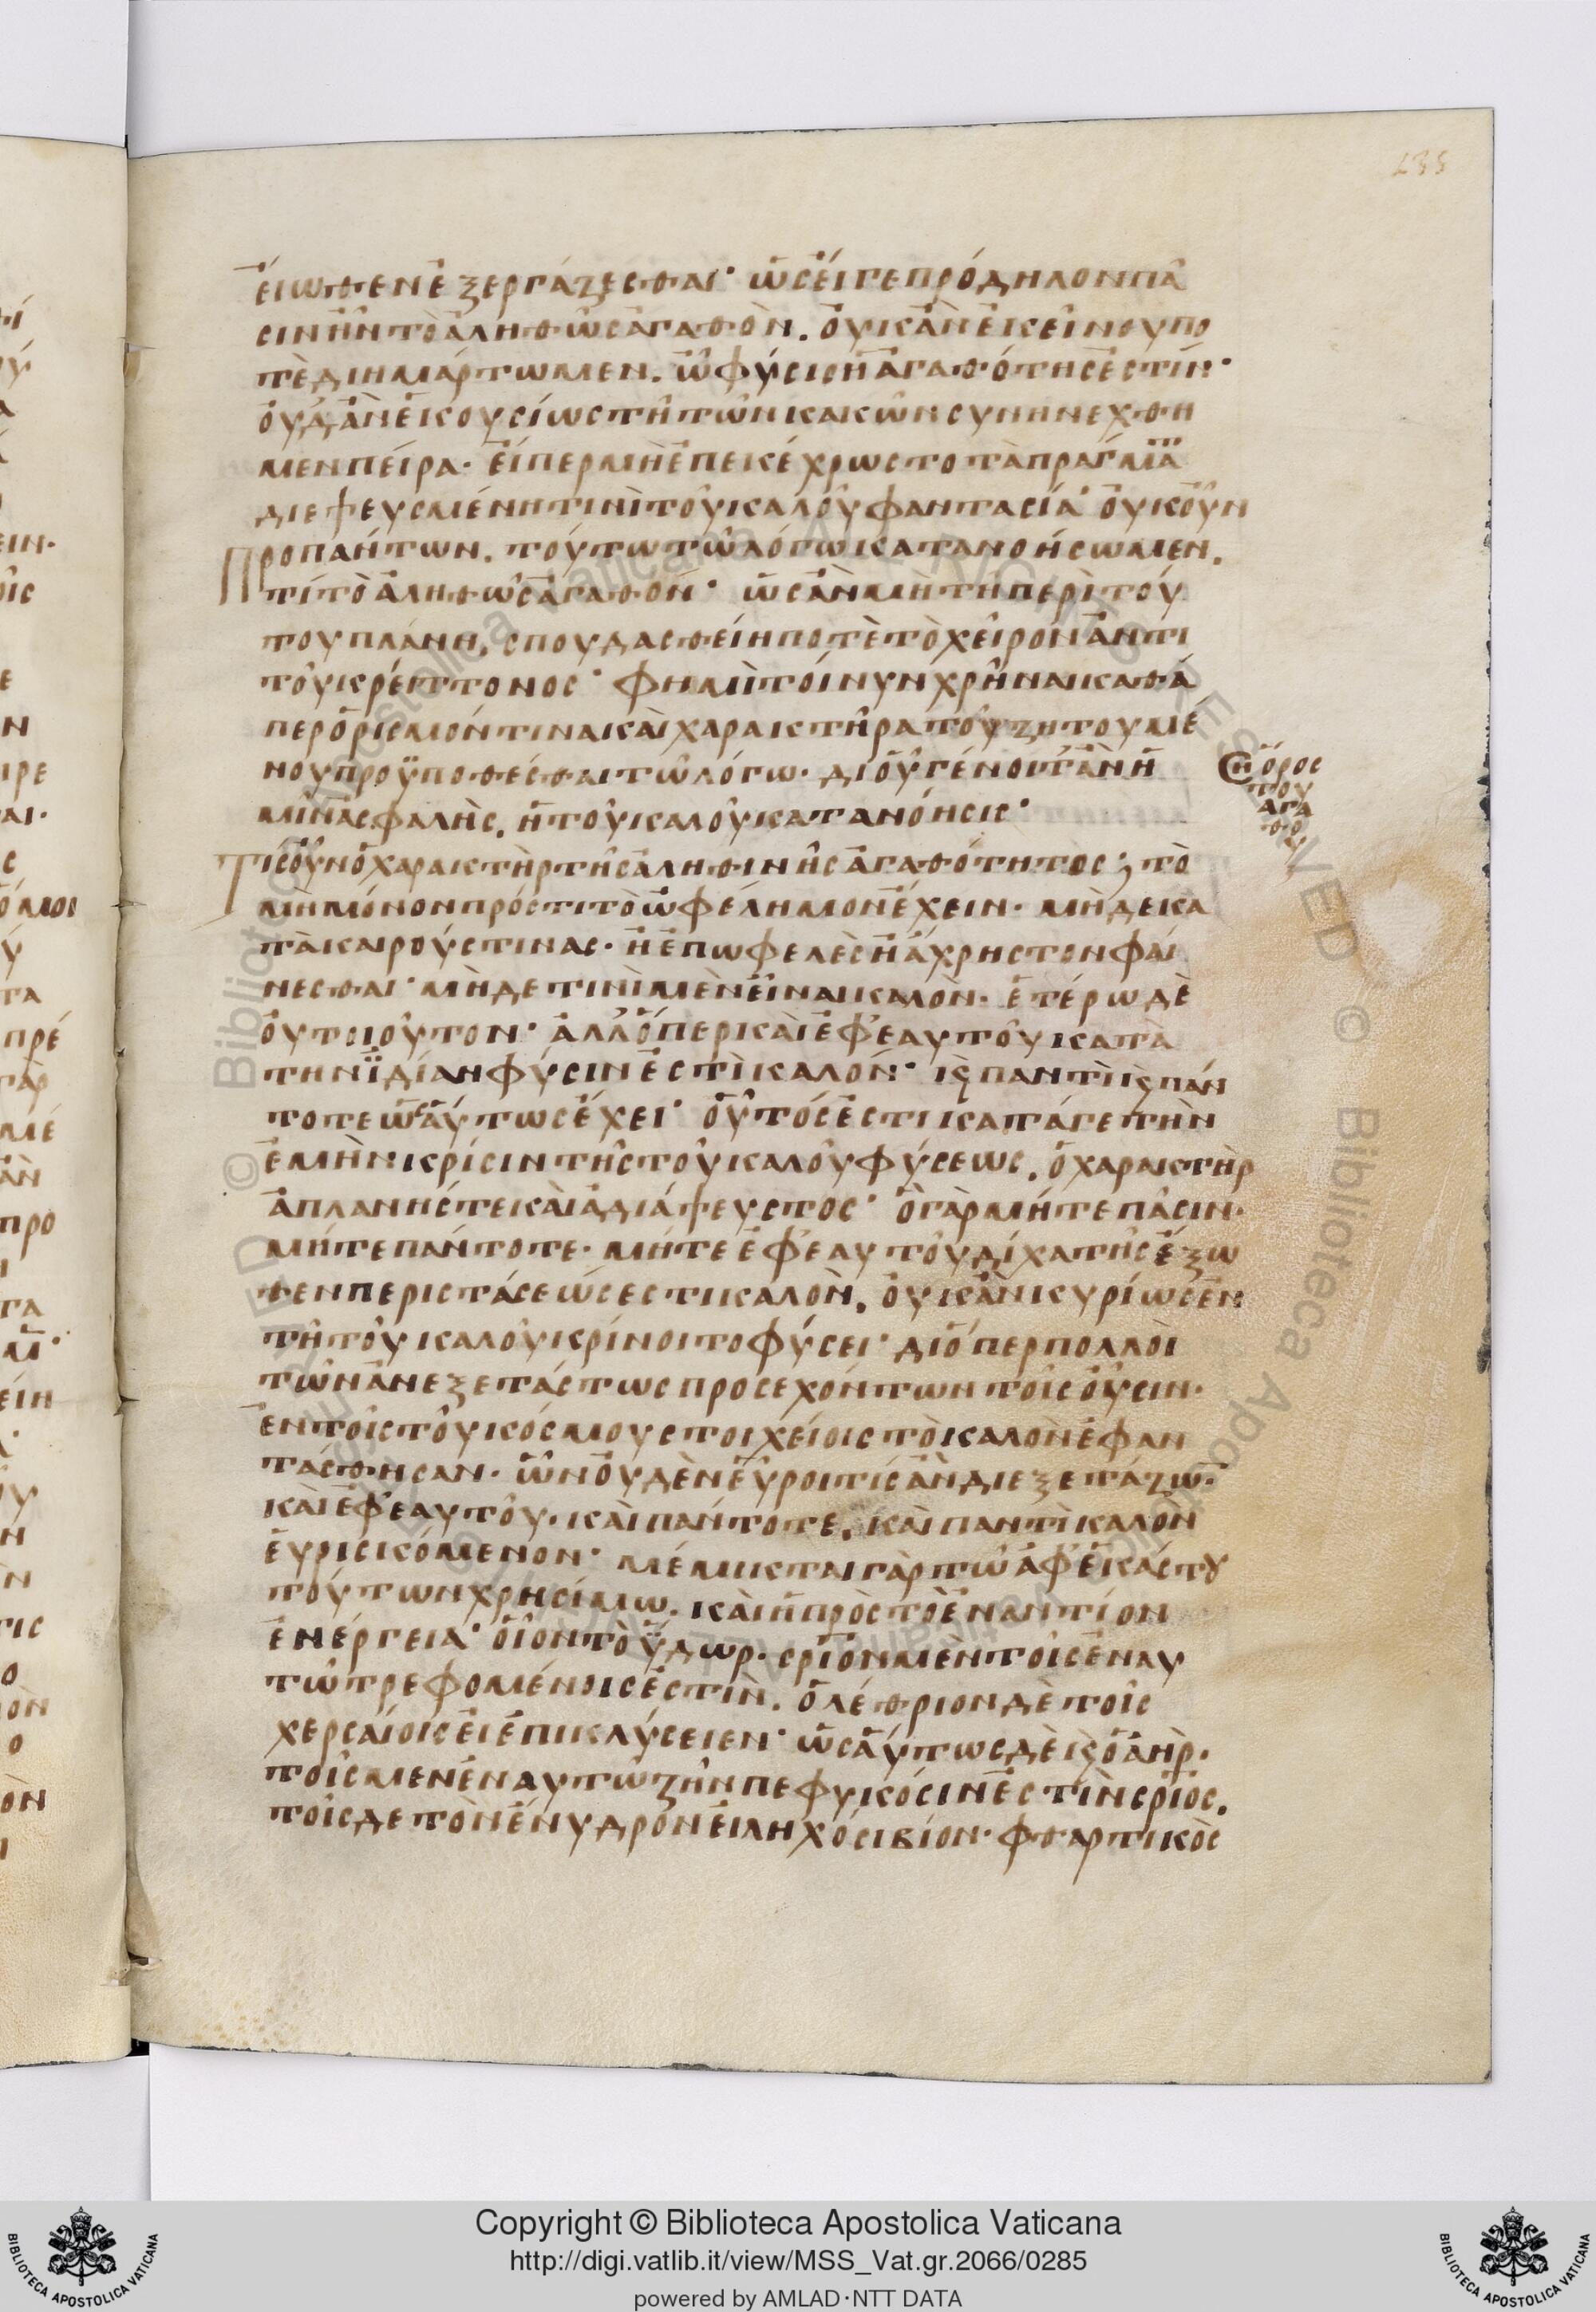 εἴωθεν ἐξεργάζεσθαι· ὡς εἴγε πρόδηλον πᾶ
σιν ἦν τὸ ἀληθῶς ἀγαθὸν. οὐκ ἂν ἐκείνου πο
τὲ διημάρτωμεν. ὧ φύσις ἡ ἀγαθότης ἐστίν·
οὐδ' ἂν ἑκουσίως τῆ τῶν κακῶν συνηνέχθη
μεν πείρα. εἴπερ μὴ ἐπεκέχρωστο τὰ πράγμα
διεψευσμένη τινὶ τοῦ καλοῦ φαντασία· οὐκοῦν
Προπάντων. τούτω τῶ λόγω κατανοήσωμεν.
τί τὸ ἀληθῶς ἀγαθόν· ὡς ἂν μὴ τῆ περὶ τού
του πλάνη, σπουδασθείη ποτὲ τὸ χεῖρον ἀντὶ
τοῦ κρείττονος· φημὶ τοίνυν χρῆναι καθά
περ ὁρισμόν τινα καὶ χαρακτῆρα τοῦ ζητουμέ
νου προϋποθέσθαι τῶ λόγω. δι οὗ γένοιτ' ἂν ἡ
μῖν ἀσφαλὴς, ἡ τοῦ καλοῦ κατανόησις·
Τίς οὖν ὁ χαρακτὴρ τῆς ἀληθινῆς ἀγαθότητος; τὸ
μὴ μόνον πρός τι τὸ ὠφέλημον ἔχειν. μὴδε κα
τὰ καιρούς τινας. ἢ ἐπωφελὲς ἢ ἄχρηστον φαί
νεσθαι· μὴδε τινὶ μὲν εἶναι καλὸν. ἑτέρω δὲ
οὐ τοιοῦτον· ἀλλ' ὅπερ καὶ ἐφ' ἑαυτοῦ κατὰ
τὴν ϊδίαν φύσιν ἐστὶ καλόν· κ παντὶ κ πάν
τοτε ὡσαύτως ἔχει· οὗτός ἐστι κατάγε τὴν
ἐμὴν κρίσιν τῆς τοῦ καλοῦ φύσεως, ὁ χαρακτὴρ
ἀπλανής τε καὶ ἀδιάψευστος· ὃ γὰρ μήτε πᾶσιν.
μήτε πάντοτε. μήτε ἐφ' ἑαυτοῦ δίχα τῆς ἔξω
θεν περιστάσεώς ἐστι καλὸν. οὐκ ἂν κυρίως ἐν
τῆ τοῦ καλοῦ κρίνοιτο φύσει· διόπερ πολλοὶ
τῶν ἀνεξετάστως προσεχόντων τοῖς οὖσιν.
ἐν τοῖς τοῦ κόσμου στοιχείοις τὸ καλὸν ἐφαν
τάσθησαν. ὧν οὐδὲν εὕροι τίς ἂν διεξετάζων.
καὶ ἐφ' ἑαυτοῦ. καὶ πάντοτε. καὶ παντὶ καλὸν
εὑρισκόμενον· μέμικται γὰρ τῶ ἀφ' ἑκάστου
τούτων χρησίμω. καὶ ἡ πρὸς τὸ ἐναντίον
ἐνέργεια· οἷον τὸ ὕδωρ. σρίον μὲν τοῖς ἐν αυ
τῶ τρεφομένοις ἐστὶν. ὀλέθριον δὲ τοῖς
χερσαίοις εἰ ἐπικλύσειεν· ὡσαύτως δὲ κ ὁ ἀὴρ.
τοῖς μεν ἐν αυτῶ ζῆν πεφυκόσιν ἐστὶν σρίος.
τοῖς δε τὸν ἔνυδρον εἰληχόσι βίον. φθαρτικὸς
Cη ὅρος
του
ἀγα
θο
υ